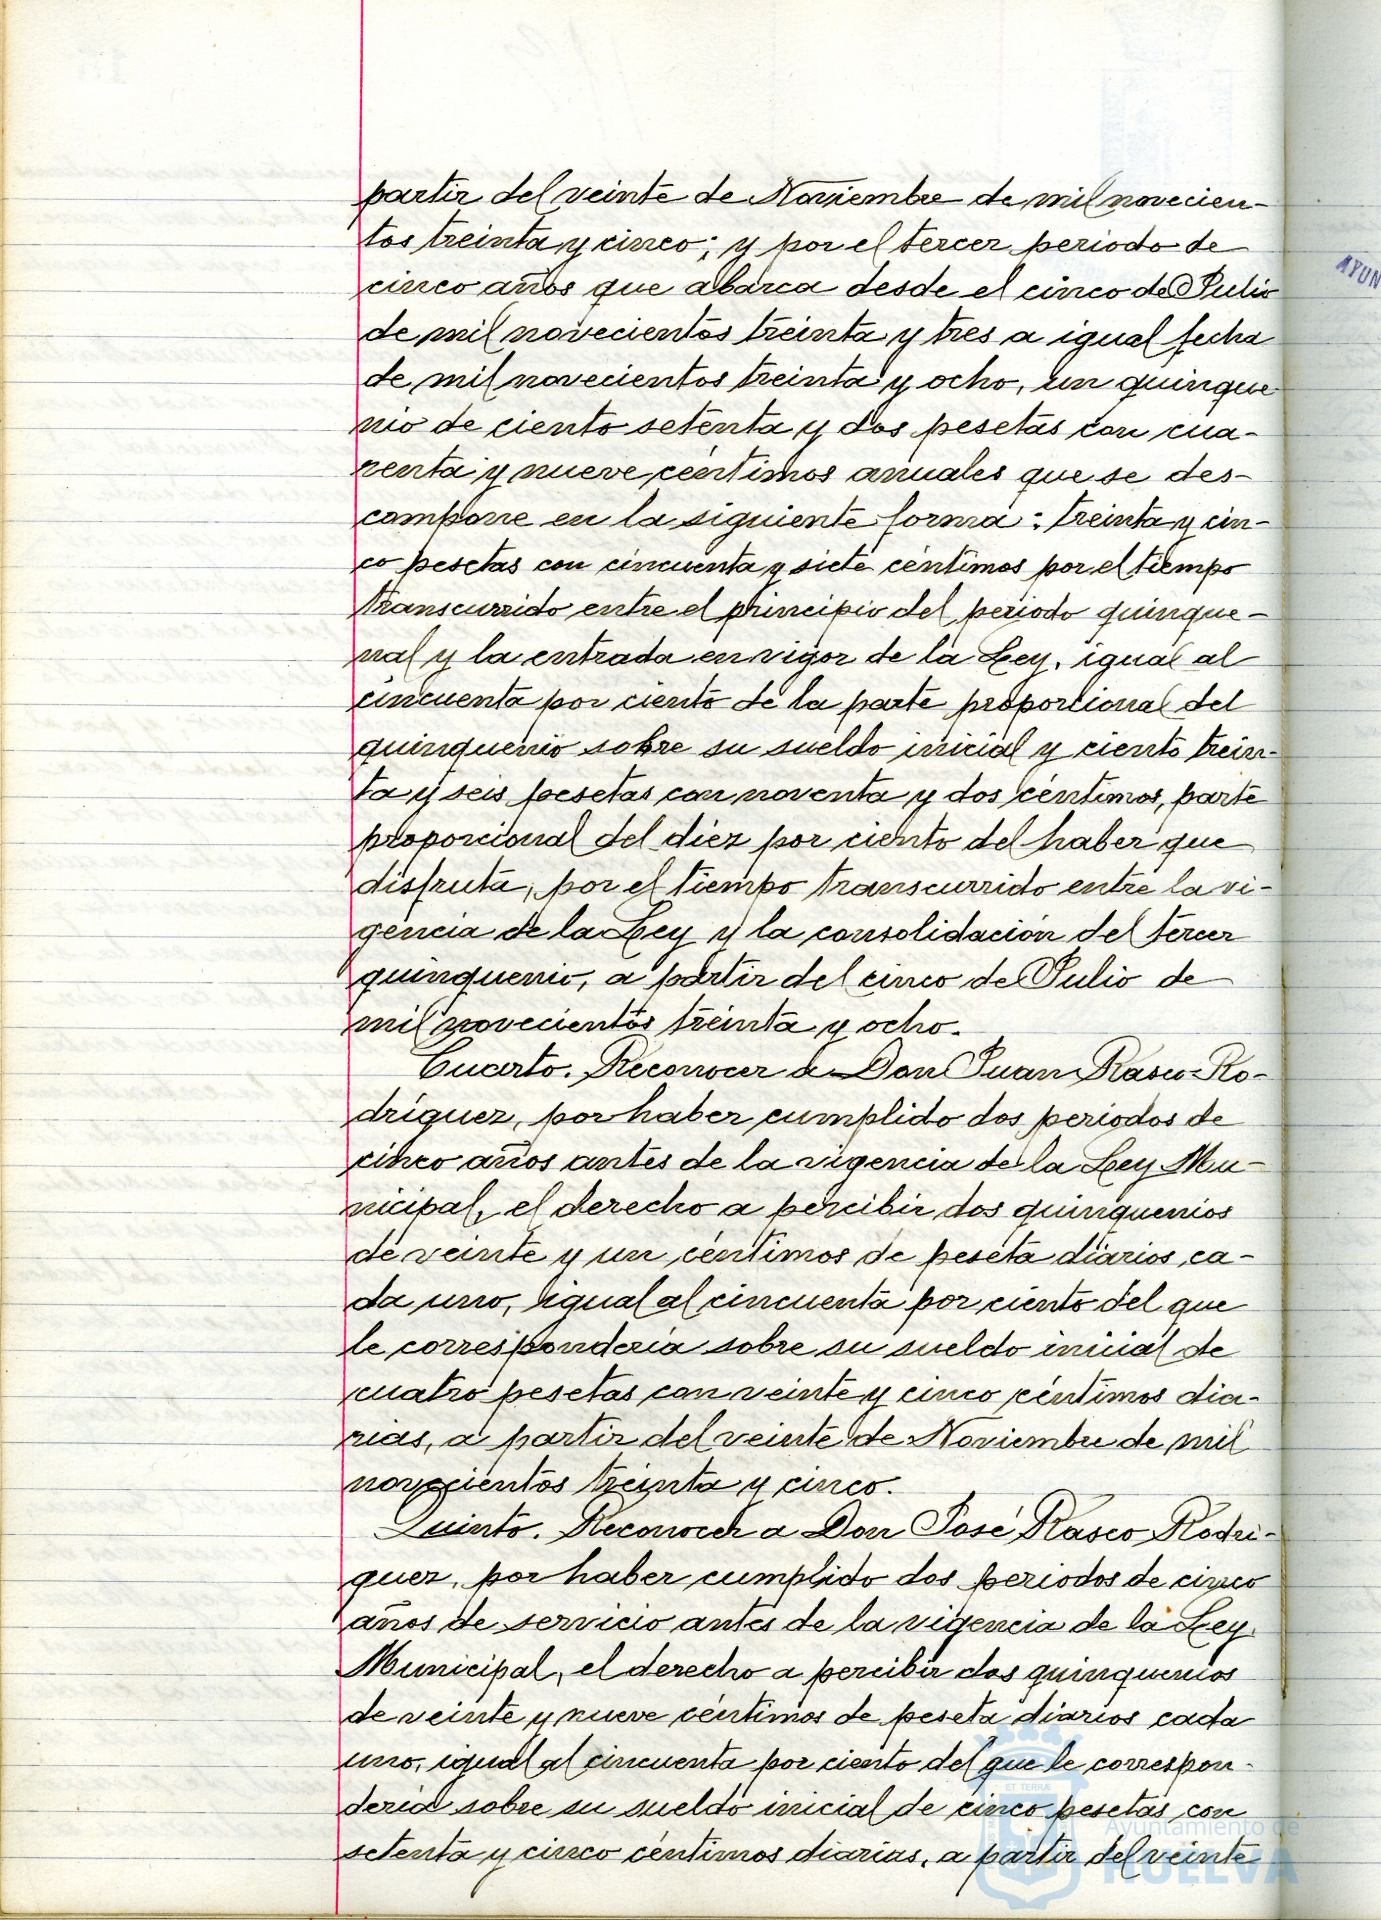 partir del veinte de Noviembre de mil novecien-
tos treinta y cinco; y por el tercer periodo de
cinco años que abarca desde el cinco de Julio
de mil novecientos treinta y tres a igual fecha
de mil novecientos treinta y ocho, un quinque
nio de ciento setenta y dos pesetas con cua-
renta y nueve céntimos anuales que se des-
compone en la siguiente forma: treinta y cin-
co pesetas con cincuenta y siete céntimos por el tiempo
transcurrido entre el principio del periodo quinque-
nal y la entrada en vigor de la Ley, igual al
cincuenta por ciento de la parte proporcional del
quinquenio sobre su sueldo inicial y ciento trein-
ta y seis pesetas con noventa y dos céntimos, parte
proporcional del diez por ciento del haber que
disfruta, por el tiempo transcurrido entre la vi-
gencia de la Ley y la consolidación del tercer
quinquenio, a partir del cinco de Julio de
mil novecientos treinta y ocho.
Cuarto. Reconocer a Don Juan Rasco Ro-
dríguez, por haber cumplido dos periodos de
cinco años antes de la vigencia de la Ley Mu-
nicipal, el derecho a percibir dos quinquenios
de veinte y un céntimos de peseta diarios ca-
da uno, igual al cincuenta por ciento del que
le correspondería sobre su sueldo inicial de
cuatro pesetas con veinte y cinco céntimos dia-
rias, a partir del veinte de Noviembre de mil
novecientos treinta y cinco.
Quinto. Reconocer a Don José Rasco Rodri-
guez, por haber cumplido dos periodos de cinco
años de servicio antes de la vigencia de la Ley
Municipal, el derecho a percibir dos quinquenios
de veinte y nueve céntimos de peseta diarios cada
uno, igual al cincuenta por ciento del que le correspon-
dería sobre su sueldo inicial de cinco pesetas con
setenta y cinco céntimos diarias, a partir del veinte
AYUN
ET TERRÆ
Ayuntamiento de
HUELVA